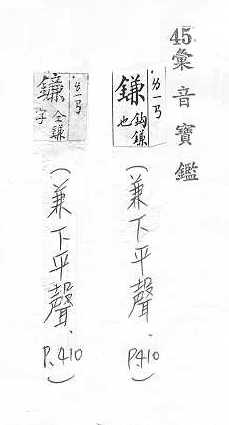 45彙音寶鑑
ㄌㄧㄢˊ
鎌 鈎鎌也
(兼下平聲. P.410)
ㄌㄧㄢˊ
鐮 仝鎌字
(兼下平聲. P.410)